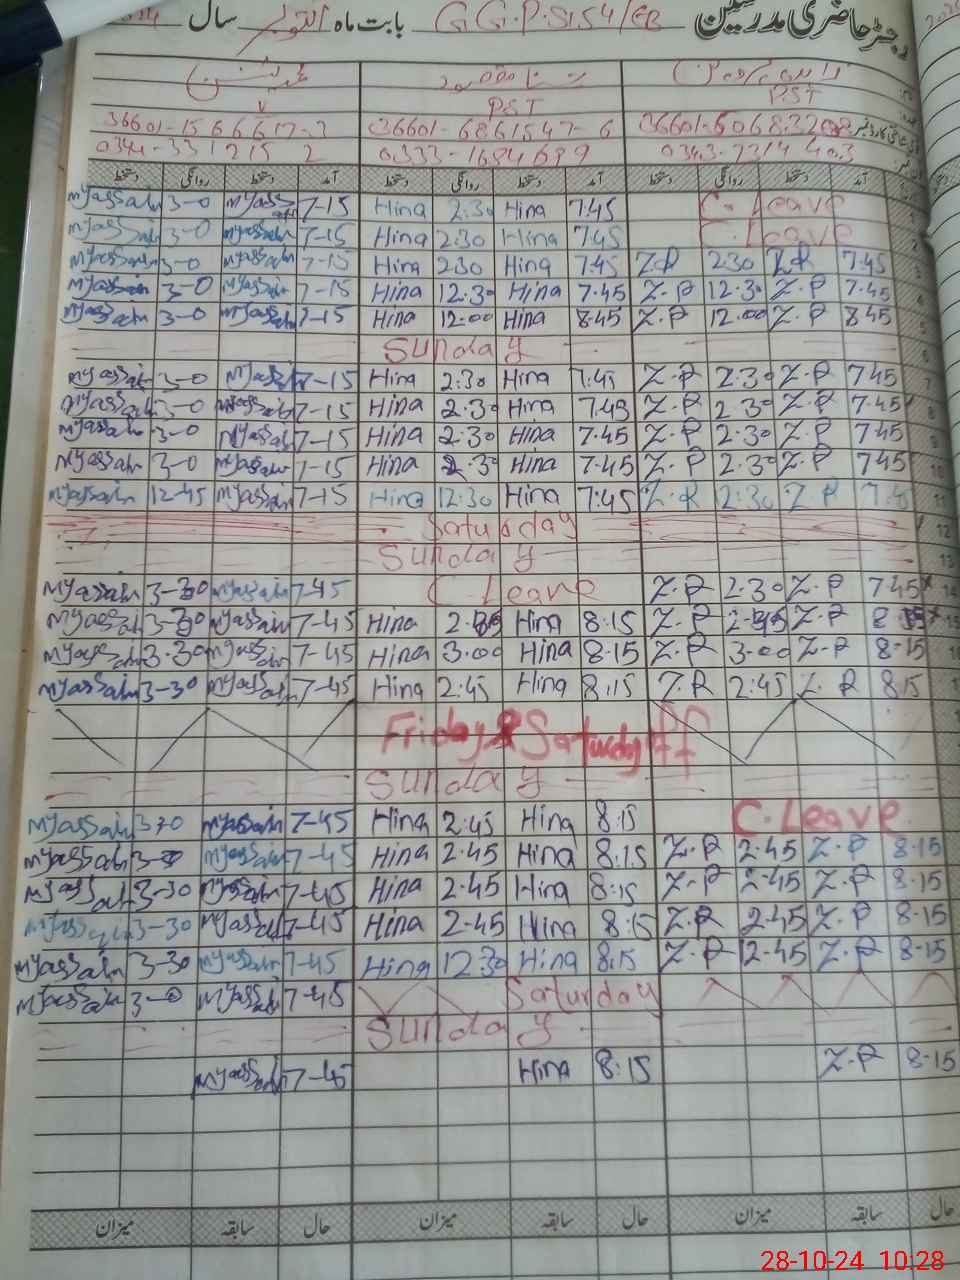 رجسٹر حاضری مدرسین G.G.P.S 154/EB بابت ماہ اکتوبر سال
PST PST
36601-1566617-3 36601-6861547-6
0333-1684689
دستخط روانگی دستخط آمد دستخط روانگی دستخط آمد دستخط روانگی دستخط آمد
myassain 3-0 myassain 7-15 Hina 2:30 Hina 7:45 C. Leave
myassain 3-0 myassain 7-15 Hina 2:30 Hina 7:45 C. Leave 2
myassain 3-0 myassain 7-15 Hina 2:30 Hina 7.45 Z.R 2:30 Z.R 7:45 3
myassain 3-0 myassain 7-15 Hina 12.30 Hina 7.45 Z.R 12.30 Z.R 7.45
myassain 3-0 myassain 7-15 Hina 12:00 Hina 8.45 Z.R 12.00 Z.R 8.45 5
Sunday
myassain 3-0 myassain 7-15 Hina 2:30 Hina 7:45 Z.R 2:30 Z.R 7.45 7
myassain 3-0 myassain 7-15 Hina 2:30 Hina 7.45 Z.R 2.30 Z.R 7.45 8
myassain 3-0 myassain 7-15 Hina 2:30 Hina 7.45 Z.R 2:30 Z.R 7.45 9
myassain 3-0 myassain 7-15 Hina 2.30 Hina 7.45 Z.R 2:30 Z.R 7.45 10
myassain 12-45 myassain 7-15 Hina 12:30 Hina 7:45 Z.R 2:30 Z.R 11
Saturday 12
Sunday 13
myassain 3-30 myassain 7-45 C Leave Z.R 2:30 Z.R 7.45 14
myassain 3-30 myassain 7-45 Hina Hina 8:15 Z.R Z.R 15
myassain 3.30 myassain 7-45 Hina 3:00 Hina 8.15 Z.R 3:00 Z.R 8-15
myassain 3-30 myassain 7-45 Hina 2:45 Hina 8:15 Z.R 2:45 Z.R 8.15
Friday & Saturday off
Sunday
myassain myassain 7-45 Hina 2:45 Hina 8:15 C. Leave
myassain myassain 7-45 Hina 2.45 Hina 8:15 Z.R 2.45 Z.R 8-15
myassain 3-30 myassain 7-45 Hina 2-45 Hina 8:15 Z.R 2-45 Z.R 8-15
myassain 3-30 myassain 7-45 Hina 2-45 Hina 8:15 Z.R 2-45 Z.R 8-15
myassain 3-30 myassain 7-45 Hina 12.30 Hina 8:15 Z.R 12-45 Z.R 8-15
myassain 3-0 myassain 7-45 Saturday
Sunday
myassain 7-45 Hina 8:15 Z.R 8-15
میزان سابقہ حال میزان سابقہ حال میزان سابقہ حال
28-10-24 10:28